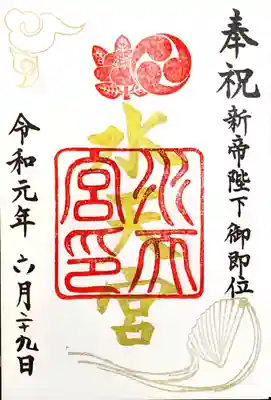 奉祝 新帝陛下御即位
水天宮
水天宮印
令和元年 六月二十九日